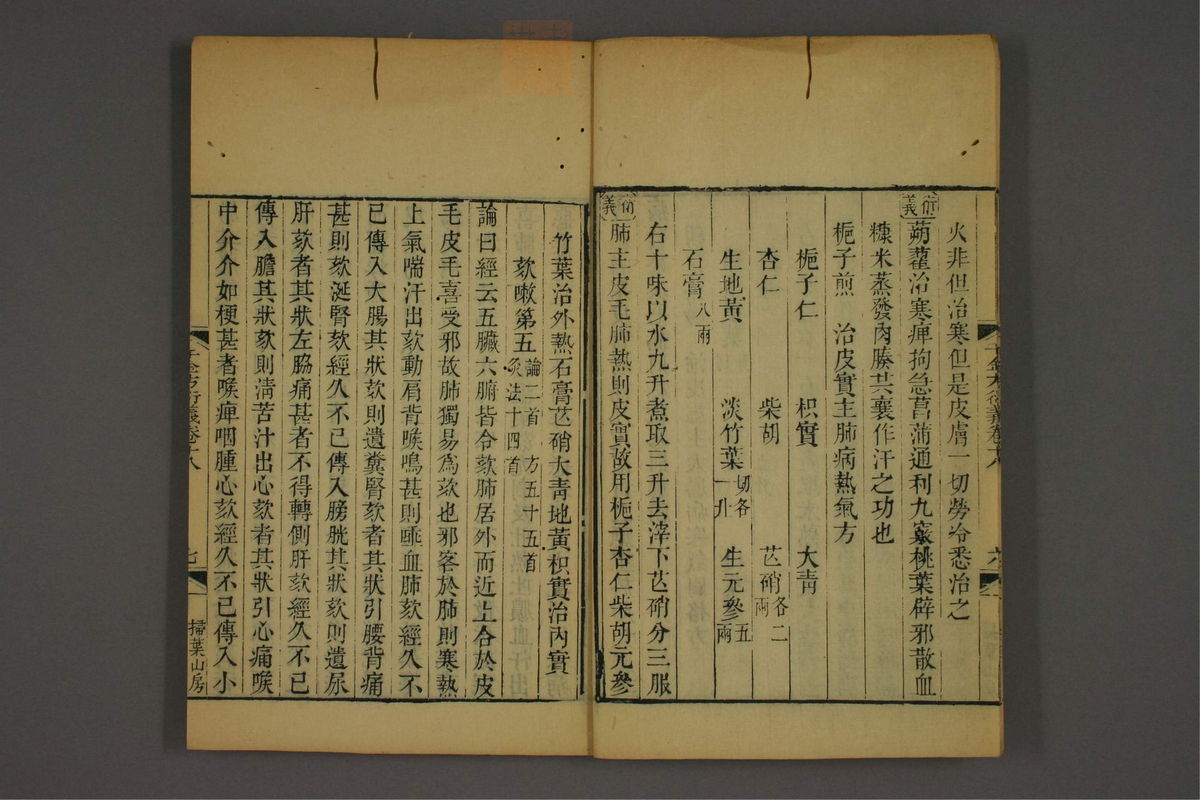 火非但治寒但是皮膚一切勞冷悉治之
衍義 蒴藋治寒痺拘急菖蒲通利九竅桃葉辟邪散血
糠米蒸發肉腠其襄作汗之功也
梔子煎　治皮實主肺病熱氣方
梔子仁　枳實　大靑
杏仁　柴胡　芒硝各二兩
生地黃　淡竹葉切各一升　生元參五兩
石膏八兩
右十味以水九升煮取三升去滓下芒硝分三服
衍義 肺主皮毛肺熱則皮實故用梔子杏仁柴胡元參
千金方衍義卷十八
六
竹葉治外熱石膏芒硝大靑地黃枳實治內實
欬嗽第五論二首　方五十五首　灸法十四首
論曰經云五臟六腑皆令欬肺居外而近上合於皮
毛皮毛喜受邪故肺獨易爲欬也邪客於肺則寒熱
上氣喘汗出欬動肩背喉鳴甚則唾血肺欬經久不
已傳入大腸其狀欬則遺糞腎欬者其狀引腰背痛
甚則欬涎腎欬經久不已傳入膀胱其狀欬則遺尿
肝欬者其狀左脇痛甚者不得轉側肝欬經久不已
傳入膽其狀欬則淸苦汁出心欬者其狀引心痛喉
中介介如梗甚者喉痺咽腫心欬經久不已傳入小
千金方衍義卷十八
七
掃葉山房